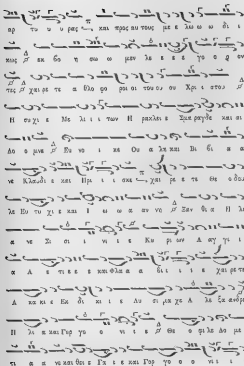 αρ το υ υ ρας και προς αυ τους με ε λω ω δι ι
κως εκ βο η σω ω μεν λε ε ε ε γο ο ον
τες χαι ρε τε α θλο φο ροι οι του ου ου Χρι ι στου
Η συ χι ε Με λι ι ι των Η ρακλει ε Σμα ραγδε και αι
Δο ο μνε Ευ νο ι κε Ου α λη και Βι βι α
νε Κλαυδι ε και Πρι ι ι σκε χαι ρε ε τε Θε ο δου
λε Ευ τυ χι ε και Ι ω ω α αν νη Ξαν θι α Η λι
α νε Σι σι ι νι ε Κυ ρι ων Α αγ γι ι
α Α ε τι ε ε και Φλα α α δι ι ι ε χαι ρε τε
Α κα κι ε Εκ δι κι ι ε Λυ σι μα χε Α λε ξα ανδρε
Η λι α και Γορ γο ο νι ι ε Θε ο φι λε Δο με
τι α α νε και θει ε Γα ι ε και Γορ γο ο ο νι ι